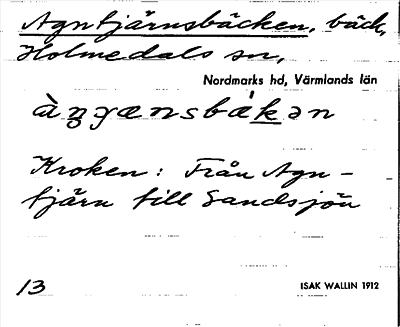 Agntjärnsbäcken, bäck,
Holmedals sn,
Nordmarks hd, Värmlands län
Kroken: Från Agn-
tjärn till Sandsjön
13
ISAK WALLIN 1912